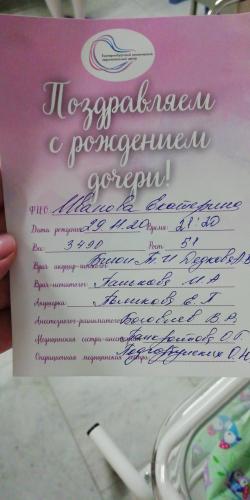 Екатеринбургский клинический
перинатальный центр
Поздравляем
с рождением
дочери!
ФИО Иванова Екатерина
Дата рождения 29.11.20 Время 21:20
Вес 3490 Рост 51
Врач акушер-гинеколог
Врач-неонатолог Панькова М А
Акушерка Аликова Е.П
Анестезиолог-реаниматолог Боговлев В.А.
Медицинская сестра-анестезист О.Г.
Операционная медицинская сестра О.Н